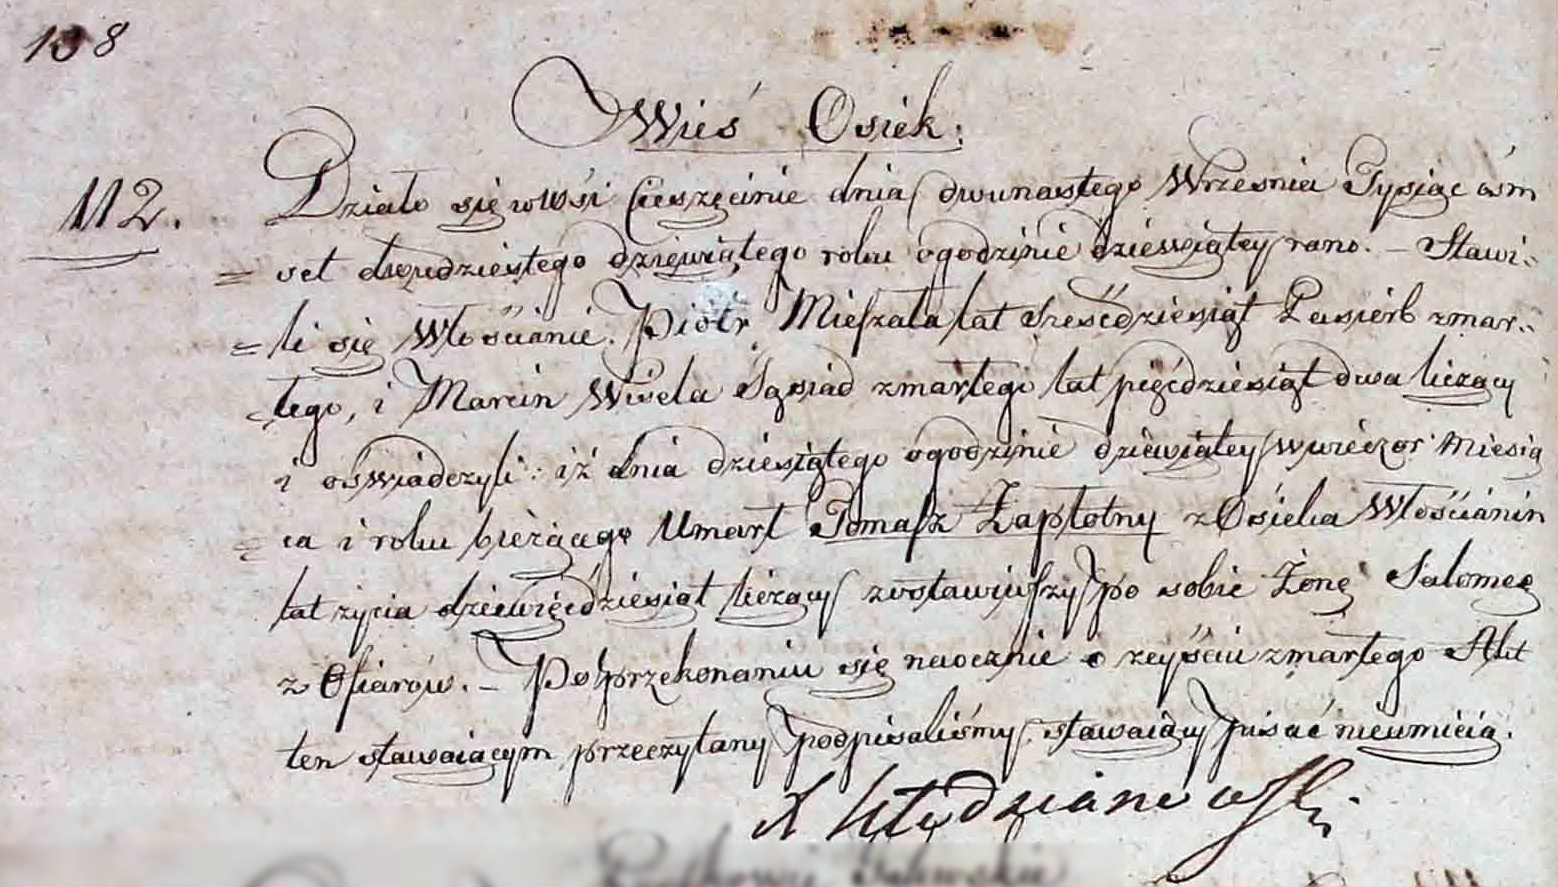 138
Wieś Osiek.
112. Działo się w Wsi Cieszęcinie dnia dwunastego Wrzesnia Tysiąc ośm
= set dwudziestego dziewiątego roku ogodzinie dziewiątey rano. – Stawi=
= li się Włościanie. Piotr Mieszała lat Sześćdziesiąt Pasierb zmar=
= łego, i Marcin Wiwela Sąsiad zmarłego lat pięćdziesiąt dwa liczący
i oswiadczyli: iż dnia dziesiątego ogodzinie dziewiątey wwieczor Miesią
= ca i roku bieżącego Umarł Tomasz Zapłotny z Osieka Włościanin
lat życia dziewięćdziesiąt liczący zostawiwszy po sobie Żonę Salomeę
z Ofiarów. – Po przekonaniu się naocznie o zeyściu zmarłego Akt
ten stawaiącym przeczytany podpisaliśmy, stawaiący pisać nieumieią.